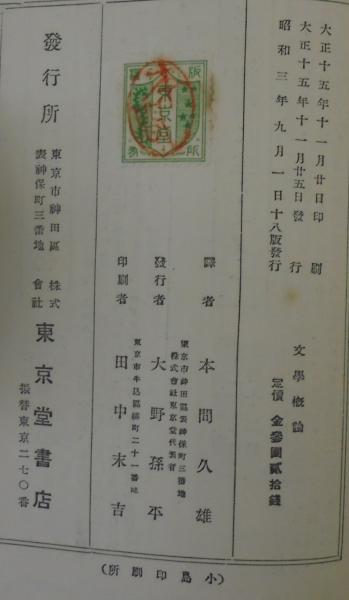 大正十五年十一月廿日印刷
大正十五年十一月廿五日發行
昭和三年九月一日十八版發行
文學概論
定價 金參圓貳拾錢
譯者 本間久雄
東京市神田區表神保町三番地
株式會社東京堂代表者
發行者 大野孫平
東京市牛込區横町二十一番地
印刷者 田中末吉
版
東京堂
發行所
東京市神田區
表神保町三番地
株式
會社
東京堂書店
振替東京二七〇番
(小島印刷所)